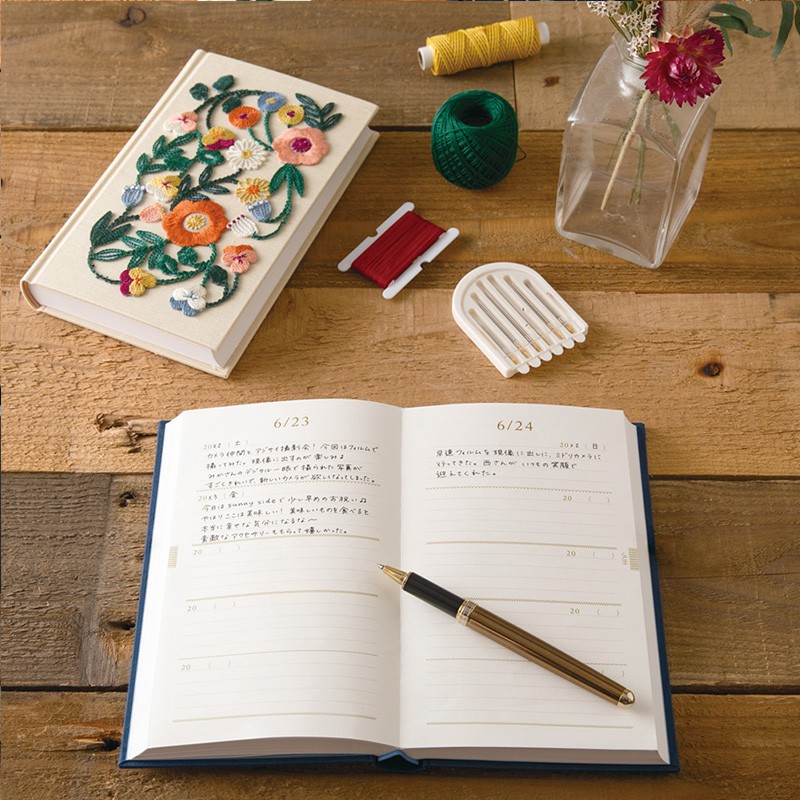 6/23
20X2 (土)
カメラ仲間とアジサイ撮影会! 今回はフィルムで
撮ってみた。現像に出すのが楽しみ♪
みかさんのデジタル一眼で撮られた写真が
すごくきれいで、新しいカメラが欲しくなってしまった。
20X3 (金)
今日はsunny sideで少し早めのお祝い♪
やはりここは美味しい! 美味しいものを食べると
本当に幸せな気分になるな〜
素敵なアクセサリーももらって嬉しかった。
20 ( )
20 ( )
20 ( )
6/24
20X2 (日)
早速フィルムを現像に出しに、ミドリカメラに
行ってきた。西さんがいつもの笑顔で
迎えてくれた。
20 ( )
20 ( )
20 ( )